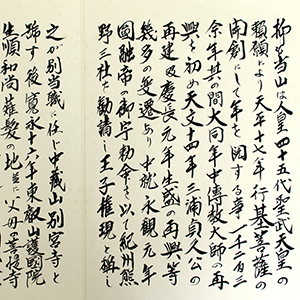 抑も当山は人皇四十五代聖武天皇の
勅願により天平十七年行基菩薩の
開創にして年を閲する事一千二百三
余年其の間大同年中傳教大師の再
興を初め天文十四年三浦貞久公の
再建及慶長元年生盛の再興等
幾多の変遷あり中就永観元年
圓融帝の御宇勅命を以て紀州熊
野三社を勧請し王子権現と称し
之が別当職に任じ中蔵山別宮寺と
号す後寛永十六年東叡山護國院
生順和尚薙髪の地並に父母の菩提寺